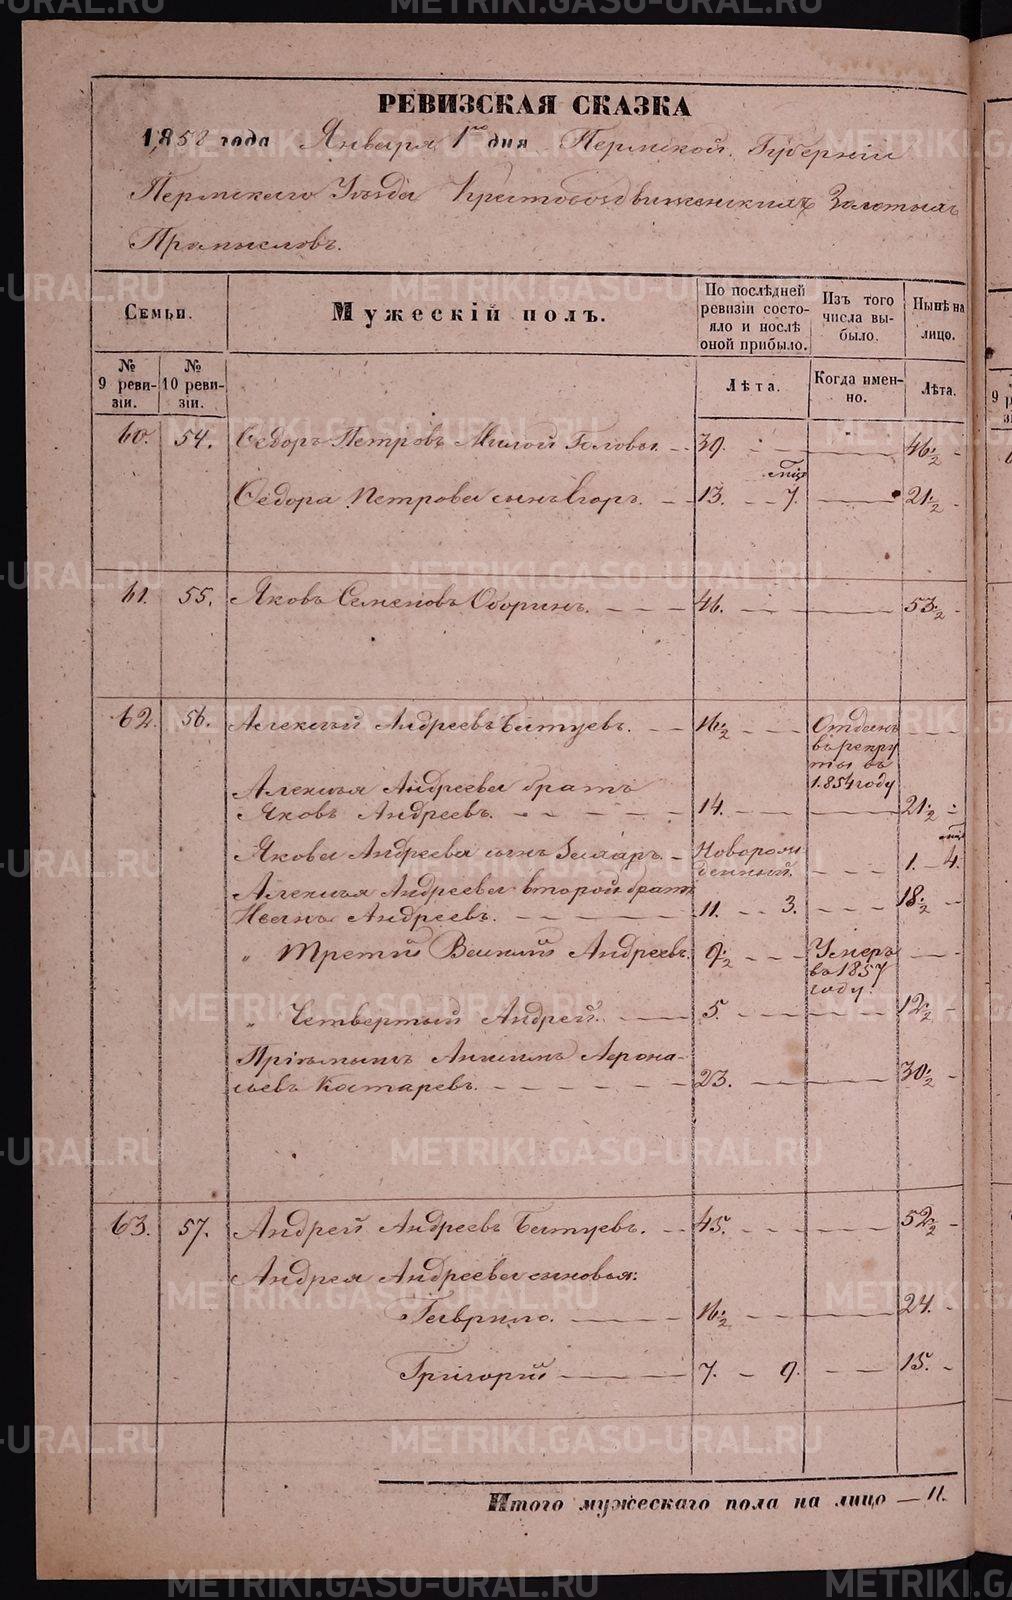 РЕВИЗСКАЯ СКАЗКА
1858 года Января 1го дня Пермской Губерніи
Пермскаго Уѣзда Крестовоздвиженскихъ Золотыхъ
Промысловъ.
Семьи.
Мужескій полъ.
По послѣдней ревизіи состояло и послѣ оной прибыло.
Изъ того числа выбыло.
Нынѣ на лицо.
№ 9 ревизіи.
№ 10 ревизіи.
Лѣта.
Когда именно.
Лѣта.
60. 54. Ѳедоръ Петровъ Милой Головы. 39. 46 1/2
Ѳедора Петрова сынъ Егоръ. 13. мѣс 7. 21 1/2
61. 55. Яковъ Семеновъ Оборинъ. 46. 53 1/2
62. 56. Алексѣй Андреевъ Батуевъ. 16 1/2 Отданъ
въ рекру
ты въ
1854 году
Алексѣя Андреева братъ
Яковъ Андреевъ. 14. 21 1/2
Якова Андреева сынъ Захаръ. Новорож
денный. 1. мѣс 4.
Алексѣя Андреева второй братъ
Иванъ Андреевъ. 11. 3. 18 1/2
„ Третій Василій Андреевъ. 9 1/2 Умеръ
въ 1857
году.
„ Четвертый Андрей. 5. 12 1/2
Пріемышъ Анисимъ Аѳона-
сьевъ Костаревъ. 23. 30 1/2
63. 57. Андрей Андреевъ Батуевъ. 45. 52 1/2
Андрея Андреева сыновья:
Гаврило. 16 1/2 24.
Григорій 7. 9. 15.
Итого мужескаго пола на лицо — 11.
METRIKI.GASO-URAL.RU